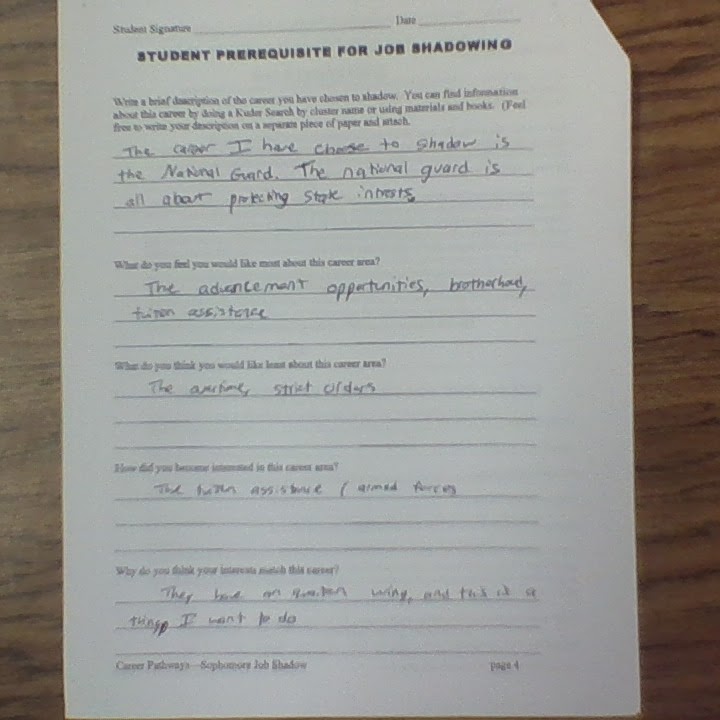 Student Signature Date
STUDENT PREREQUISITE FOR JOB SHADOWING
Write a brief description of the career you have chosen to shadow. You can find information
about this career by doing a Kuder Search by cluster name or using materials and books. (Feel
free to write your description on a separate piece of paper and attach.
The career I have choose to shadow is
the National Guard. The national guard is
all about protecting state intrests
What do you feel you would like most about this career area?
The advancement opportunities, brotherhood,
tution assistance
What do you think you would like least about this career area?
The overtime, strict orders
How did you become interested in this career area?
The assistance / armed forces
Why do you think your interests match this career?
They have an wing, and this is a
things I want to do
Career Pathways—Sophomore Job Shadow page 4